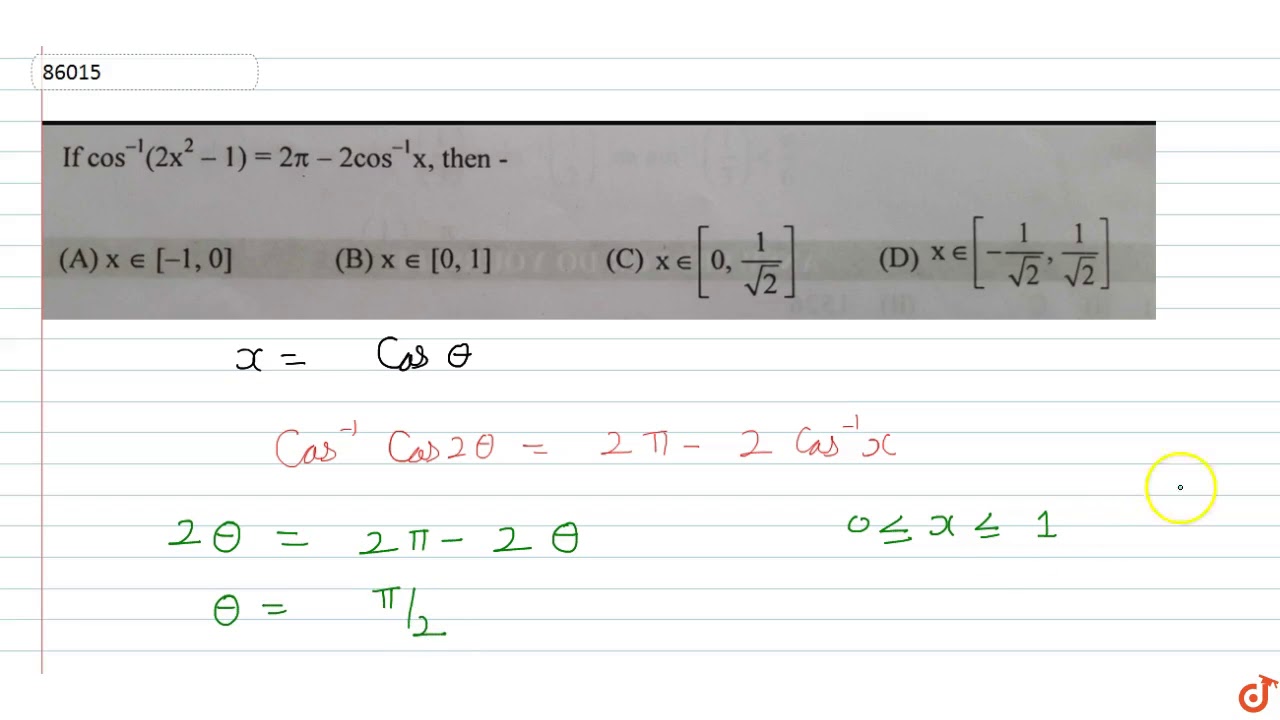 86015
If cos⁻¹(2x² – 1) = 2π – 2cos⁻¹x, then -
(A) x ∈ [–1, 0] (B) x ∈ [0, 1] (C) x ∈ [0, 1/√2] (D) x ∈ [–1/√2, 1/√2]
x = Cos θ
Cos⁻¹ Cos2θ = 2π – 2 Cos⁻¹x
2θ = 2π – 2θ 0 ≤ x ≤ 1
θ = π/2